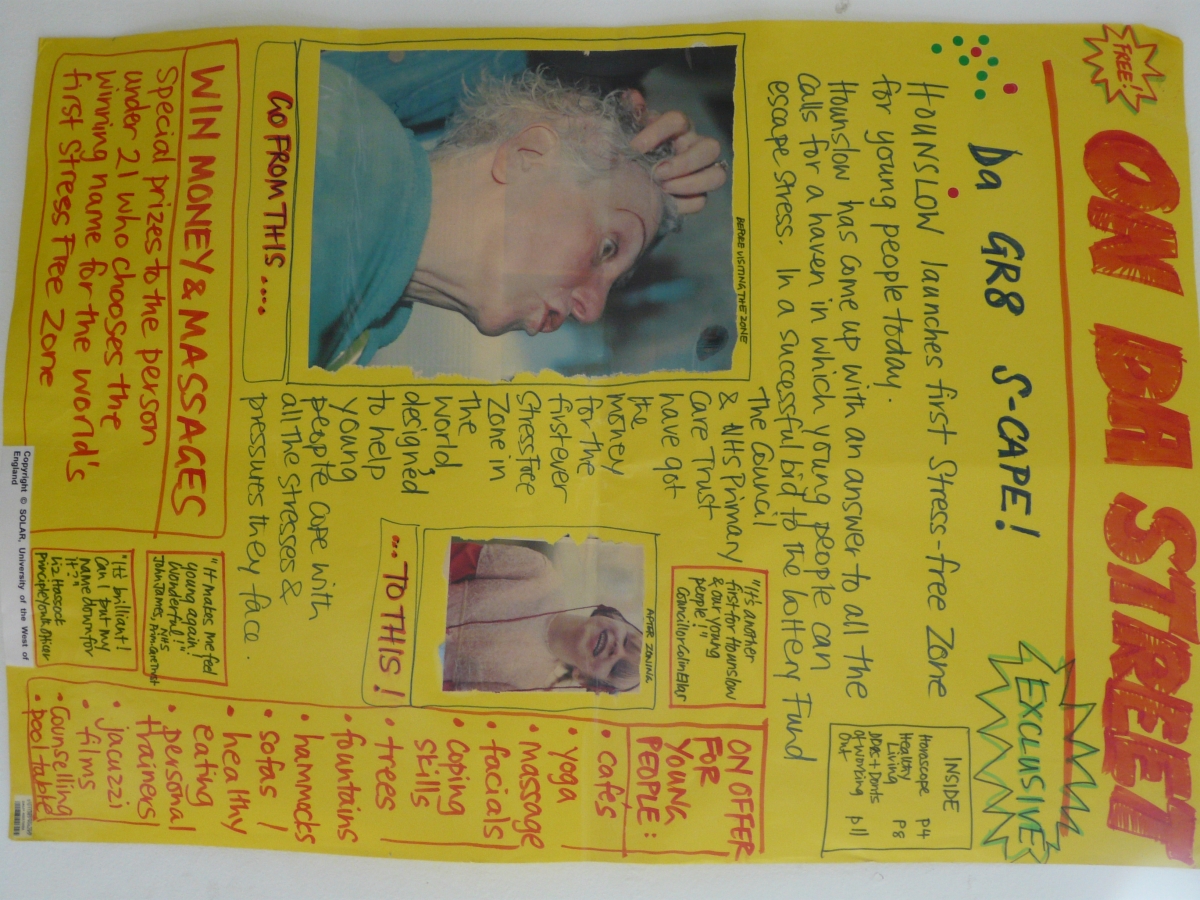 FREE!
ON DA STREET
EXCLUSIVE
Da GR8 S-CAPE!
HOUNSLOW launches first Stress-free Zone
for young people today.
Hounslow has come up with an answer to all the
calls for a haven in which young people can
escape stress. In a successful bid to the lottery Fund
the Council
& NHS Primary
Care Trust
have got
the
money
for the
first ever
Stress Free
Zone in
the
World,
designed
to help
young
people cope with
all the stresses &
pressures they face.
INSIDE
Horoscope P4
Healthy
Living P8
Dos + Donts
of working
out p11
BEFORE VISITING THE ZONE
GO FROM THIS....
"It's another
first for Hounslow
& our young
people!"
Councillor Colin Ellar
AFTER ZONING
... TO THIS!
ON OFFER
FOR
YOUNG
PEOPLE:
• cafes
• yoga
• massage
• facials
• coping
skills
• trees
• fountains
• hammocks
• sofas
• healthy
eating
• personal
trainers
• jacuzzi
• films
• Counselling
• pool table
WIN MONEY & MASSAGES
Special prizes to the person
under 21 who chooses the
winning name for the world's
first Stress Free Zone
"It makes me feel
young again!
Wonderful!"
John James, NHS
"It's brilliant!
Can I put my
name down for
it?"
Liz Hassock
Principle Youth Officer
Copyright © SOLAR, University of the West of
England